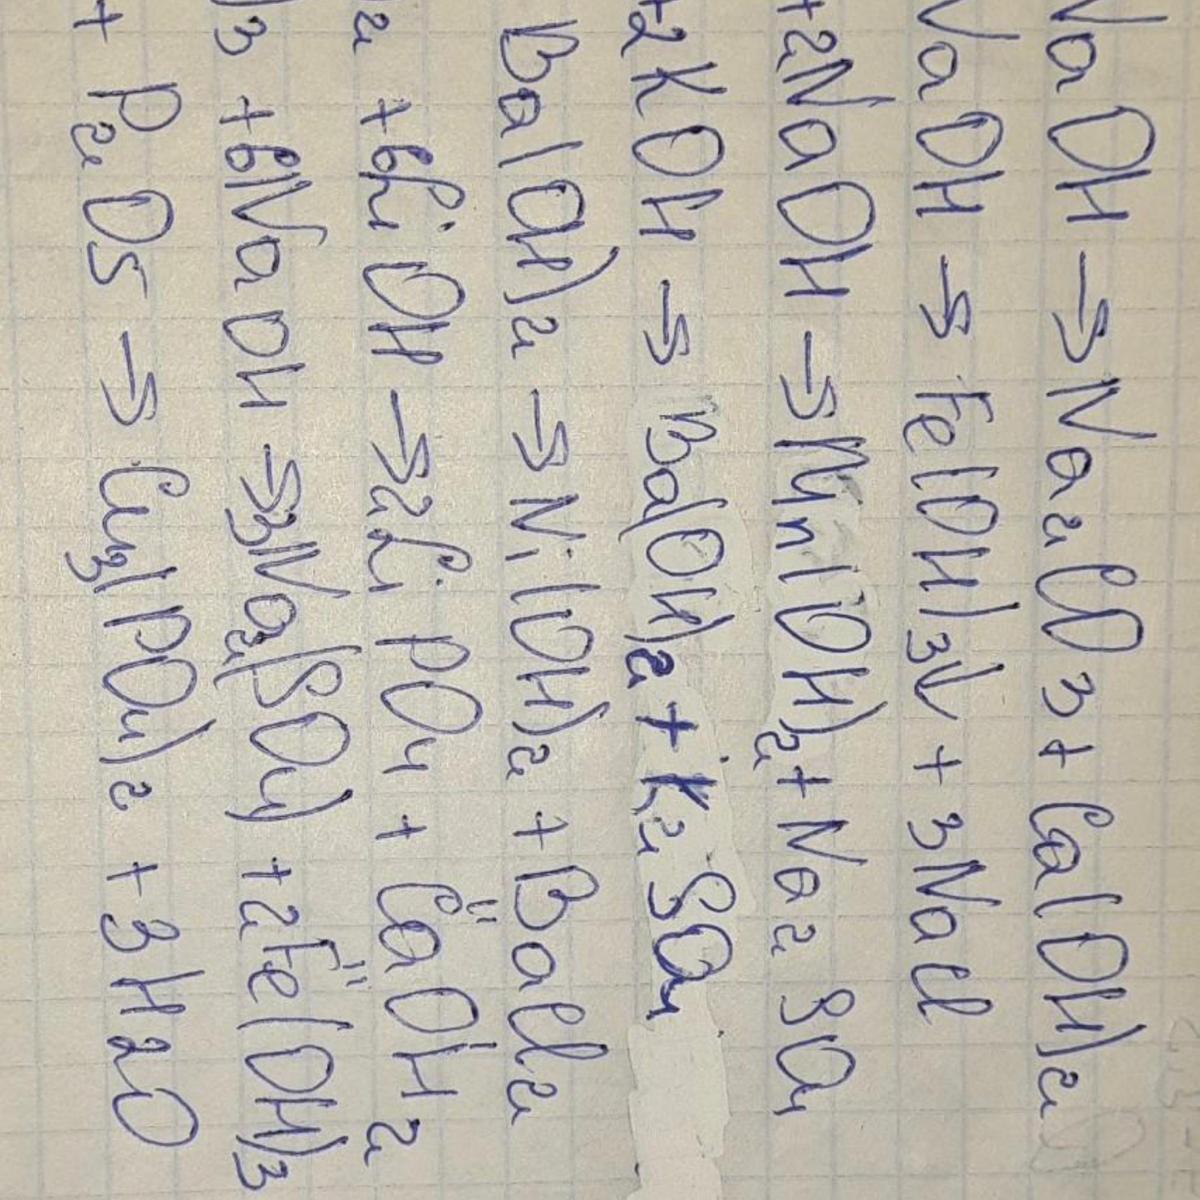 NaOH → Na2CO3 + Ca(OH)2
NaOH → Fe(OH)3↓ + 3NaCl
+2NaOH → Mn(OH)2 + Na2SO4
+2KOH → Ba(OH)2 + K2SO4
Ba(OH)2 → Ni(OH)2 + BaCl2
2 + 6LiOH → 2LiPO4 + CaOH2
)3 + 6NaOH → 3Na2(SO4) + 2Fe(OH)3
+ P2O5 → Cu3(PO4)2 + 3H2O